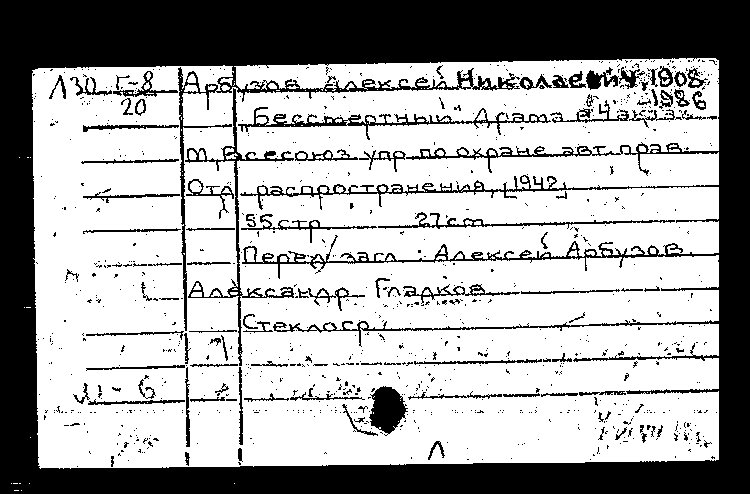 Л30 Г-8
20
Арбузов, Алексей Николаевич, 1908
-1986
"Бессмертный" Драма в 4 актах
М., Всесоюз упр. по охране авт. прав.
Отд распространения, [1942]
55 стр 27 cm
Перед загл : Алексей Арбузов
Александр Гладков
Стеклогр.
М - 6